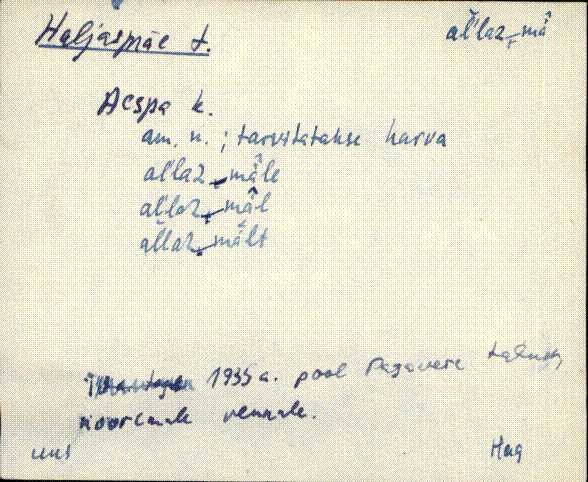 Haljasmäe t. al'laz‿mâ
Aespa k.
am. n.; tarvitatakse harva
al'laz‿mâle
al'laz‿mâl
al'laz‿mâlt
1935 a. pool Pagavere talust
nooremale vennale.
uus Hag